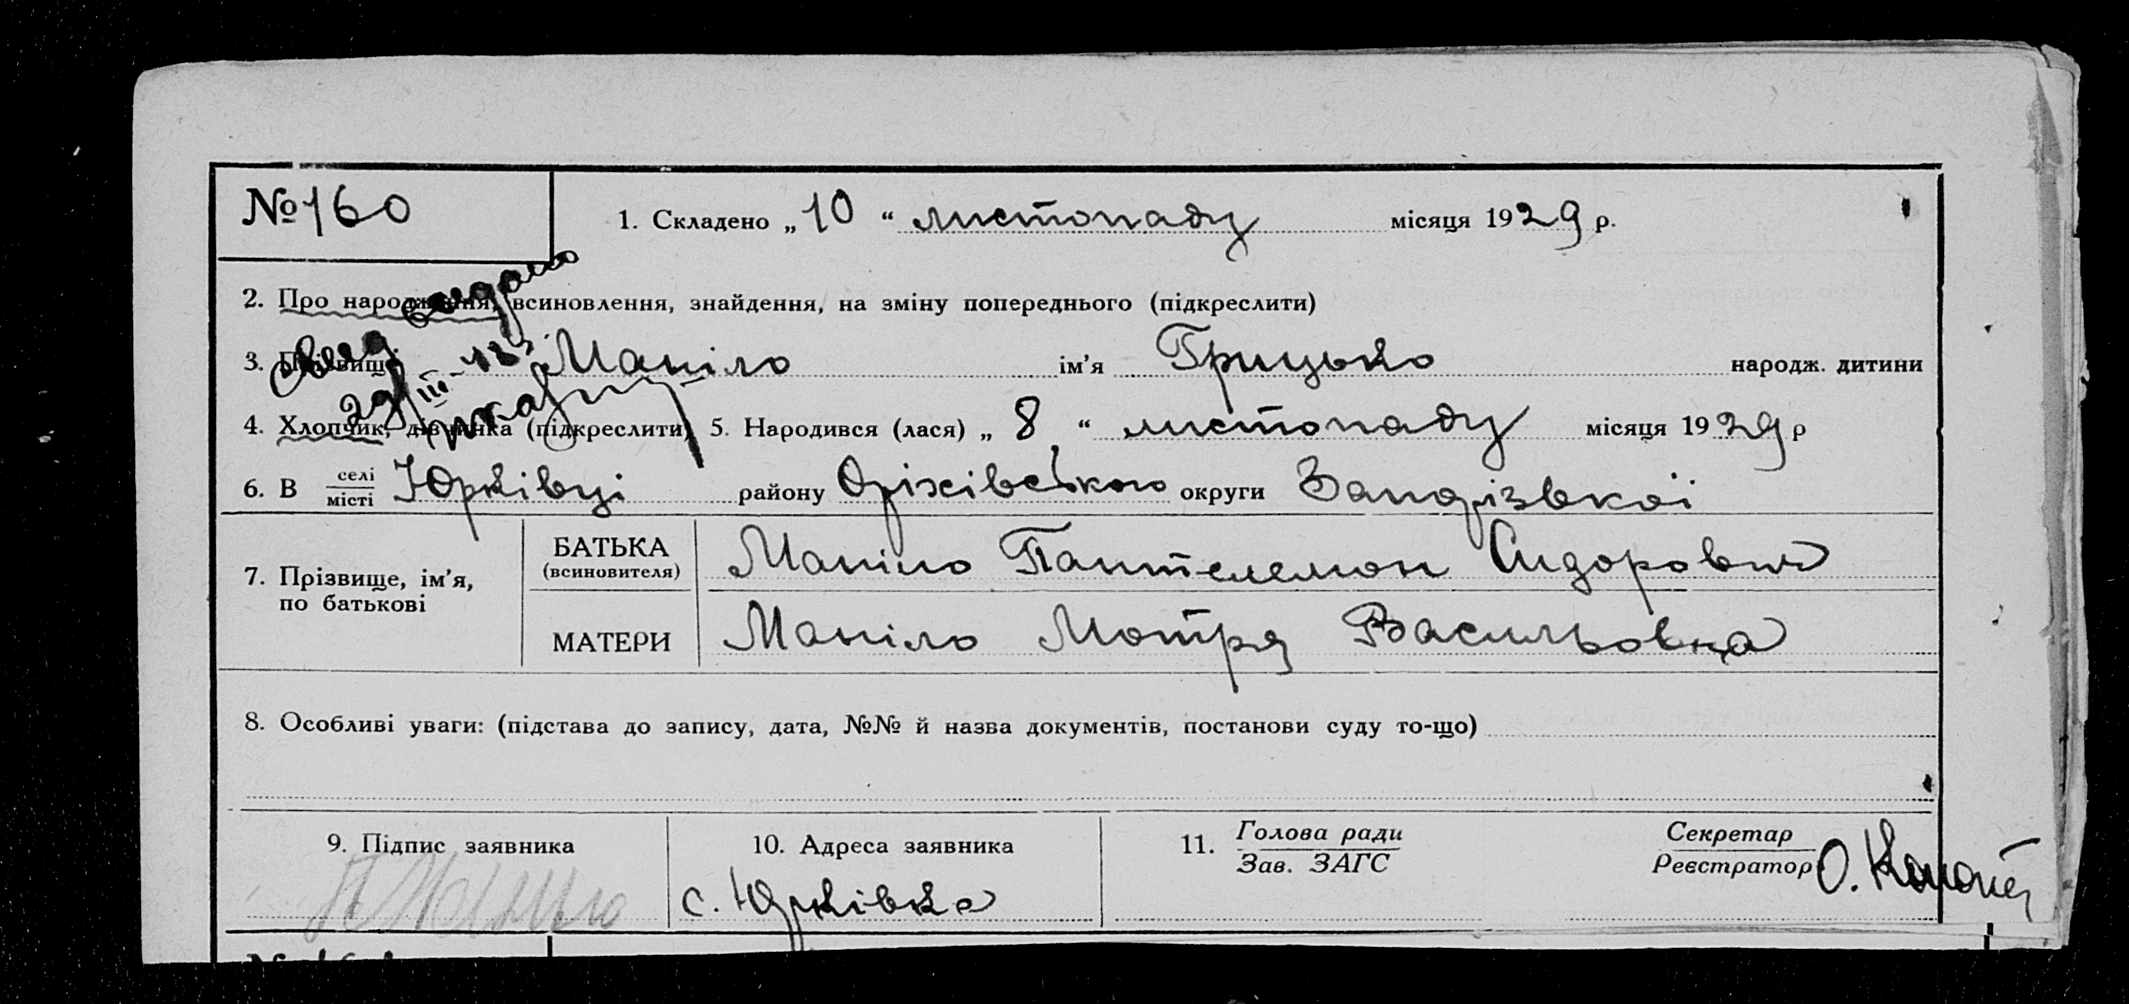 № 160
1. Складено „10“ листопаду місяця 1929 р.
2. Про народження, всиновлення, знайдення, на зміну попереднього (підкреслити)
3. Прізвище Маніло ім’я Грицько народж. дитини
4. Хлопчик, дівчинка (підкреслити) 5. Народився (лася) „8“ листопаду місяця 1929 р
6. В селі місті Юрківці району Оріхівського округи Запорізької
7. Прізвище, ім’я, по батькові
БАТЬКА (всиновителя) Маніло Пантелемон Сидорович
МАТЕРИ Маніло Мотря Васильовна
8. Особливі уваги: (підстава до запису, дата, №№ й назва документів, постанови суду то-що)
9. Підпис заявника
П Маніло
10. Адреса заявника
с. Юрківка
11. Голова ради
Зав. ЗАГС
Секретар
Реєстратор О.